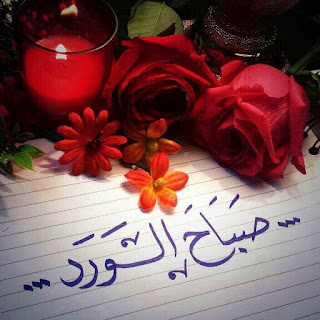 ... صَبَاحَ الـوَرَد ...